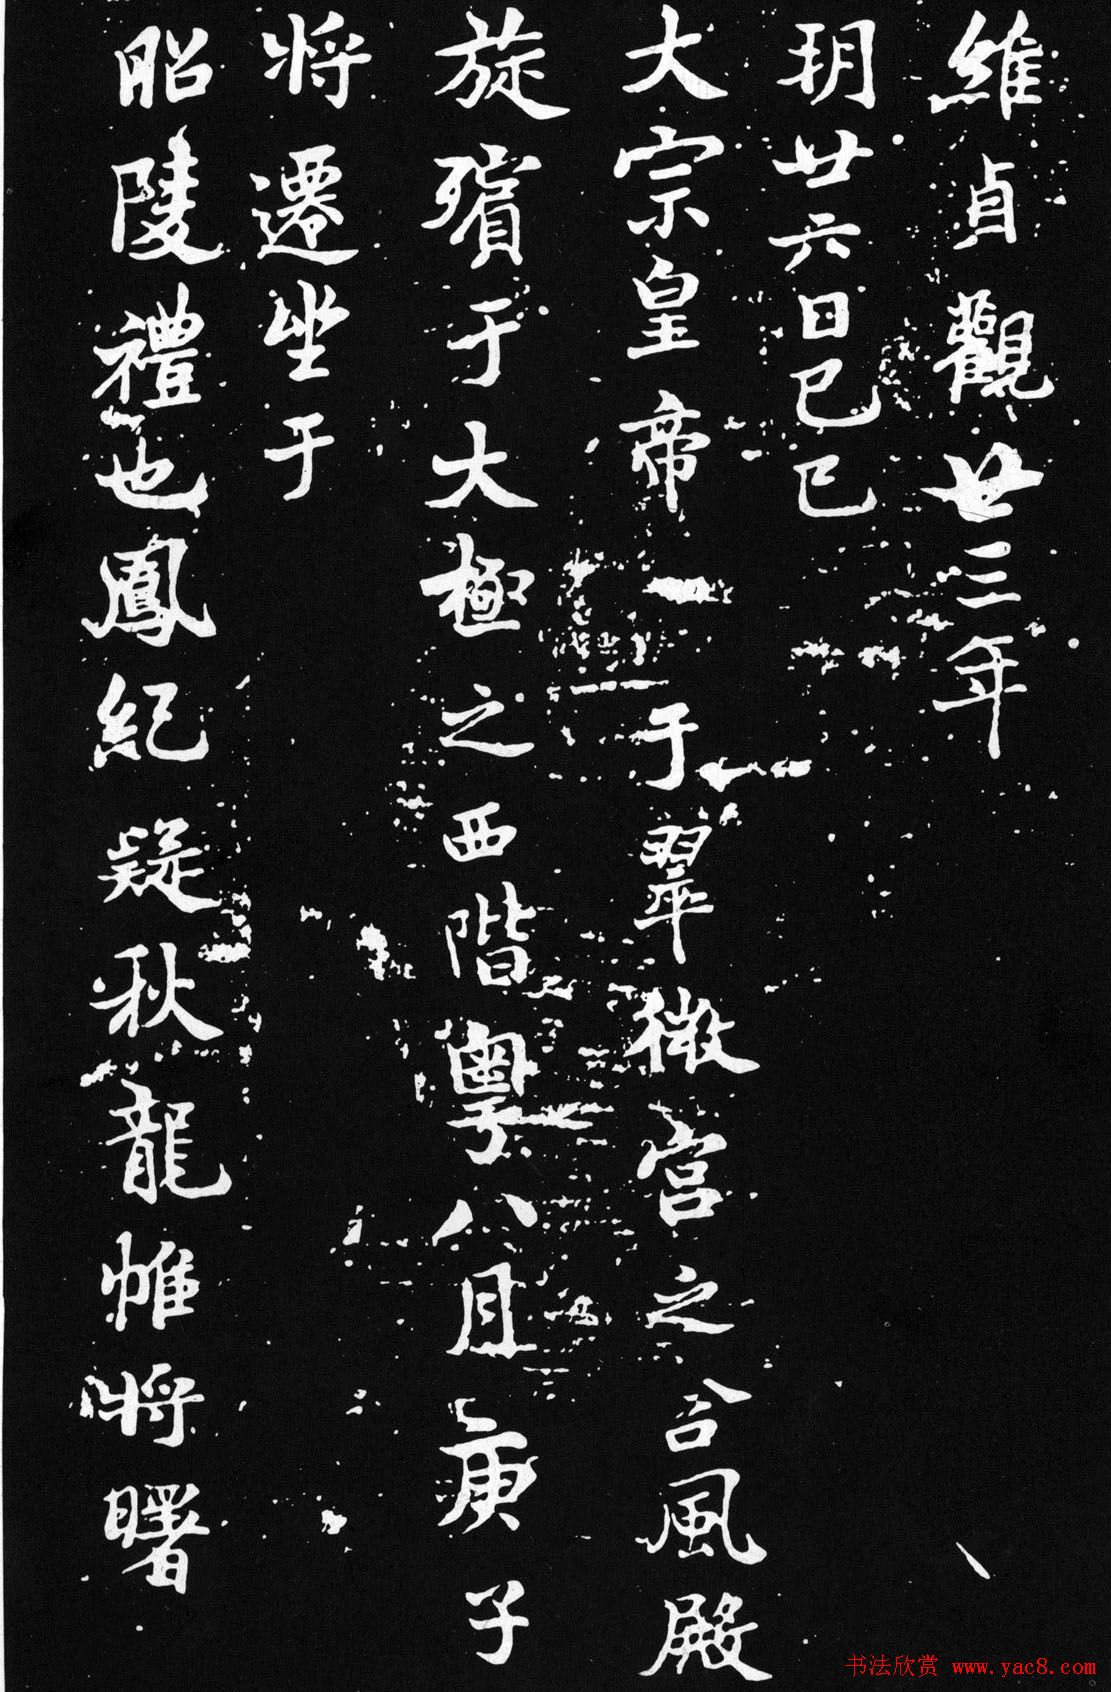 維貞觀廿三年
玥廿六日己巳
大宗皇帝于翠微宮之含風殿
旋殯于大極之西階粵八月庚子
将遷坐于
昭陵禮也鳳紀疑秋龍帷将曙
书法欣赏 www.yac8.com